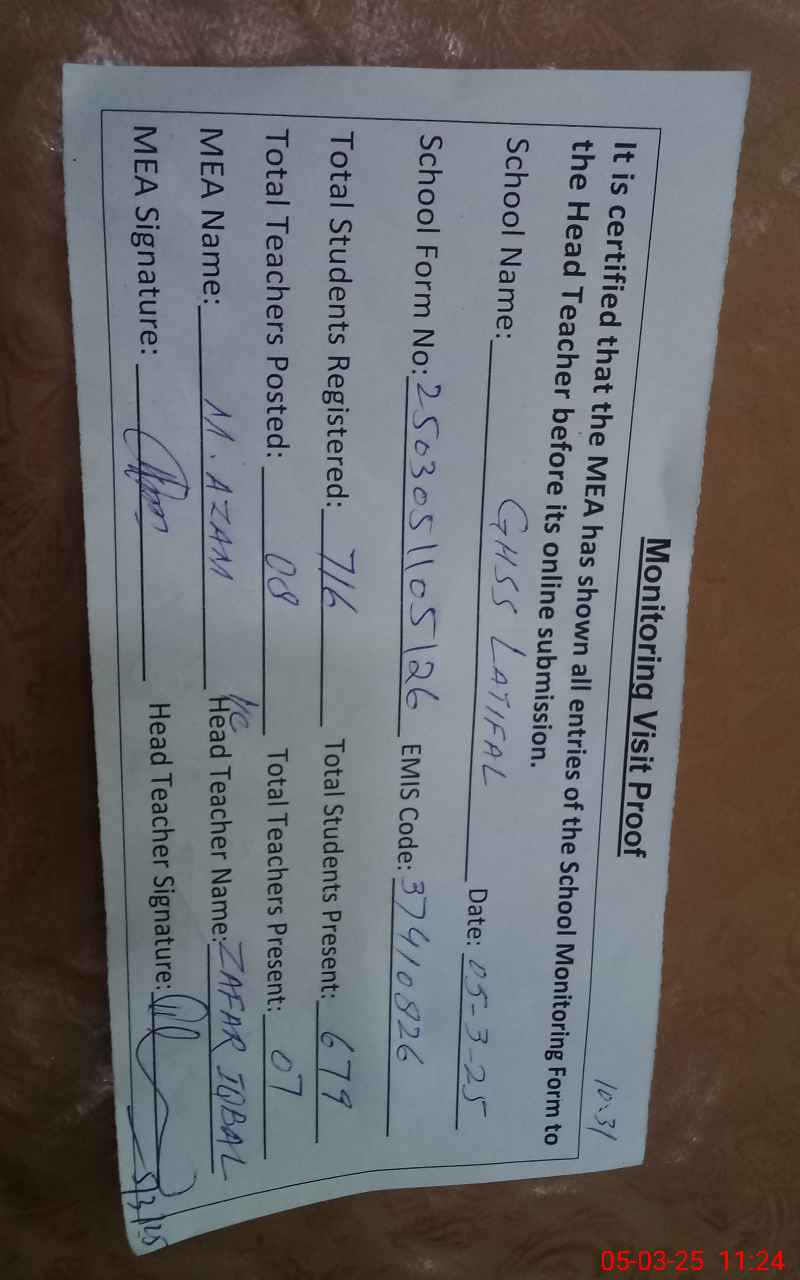 Monitoring Visit Proof
10:31
It is certified that the MEA has shown all entries of the School Monitoring Form to
the Head Teacher before its online submission.
School Name: GHSS LATIFAL Date: 05-3-25
School Form No: 2503051105126 EMIS Code: 37410826
Total Students Registered: 716 Total Students Present: 679
Total Teachers Posted: 08 Total Teachers Present: 07
MEA Name: M. AZAM I/C Head Teacher Name: ZAFAR IQBAL
MEA Signature: Head Teacher Signature:
5/3/25
05-03-25 11:24